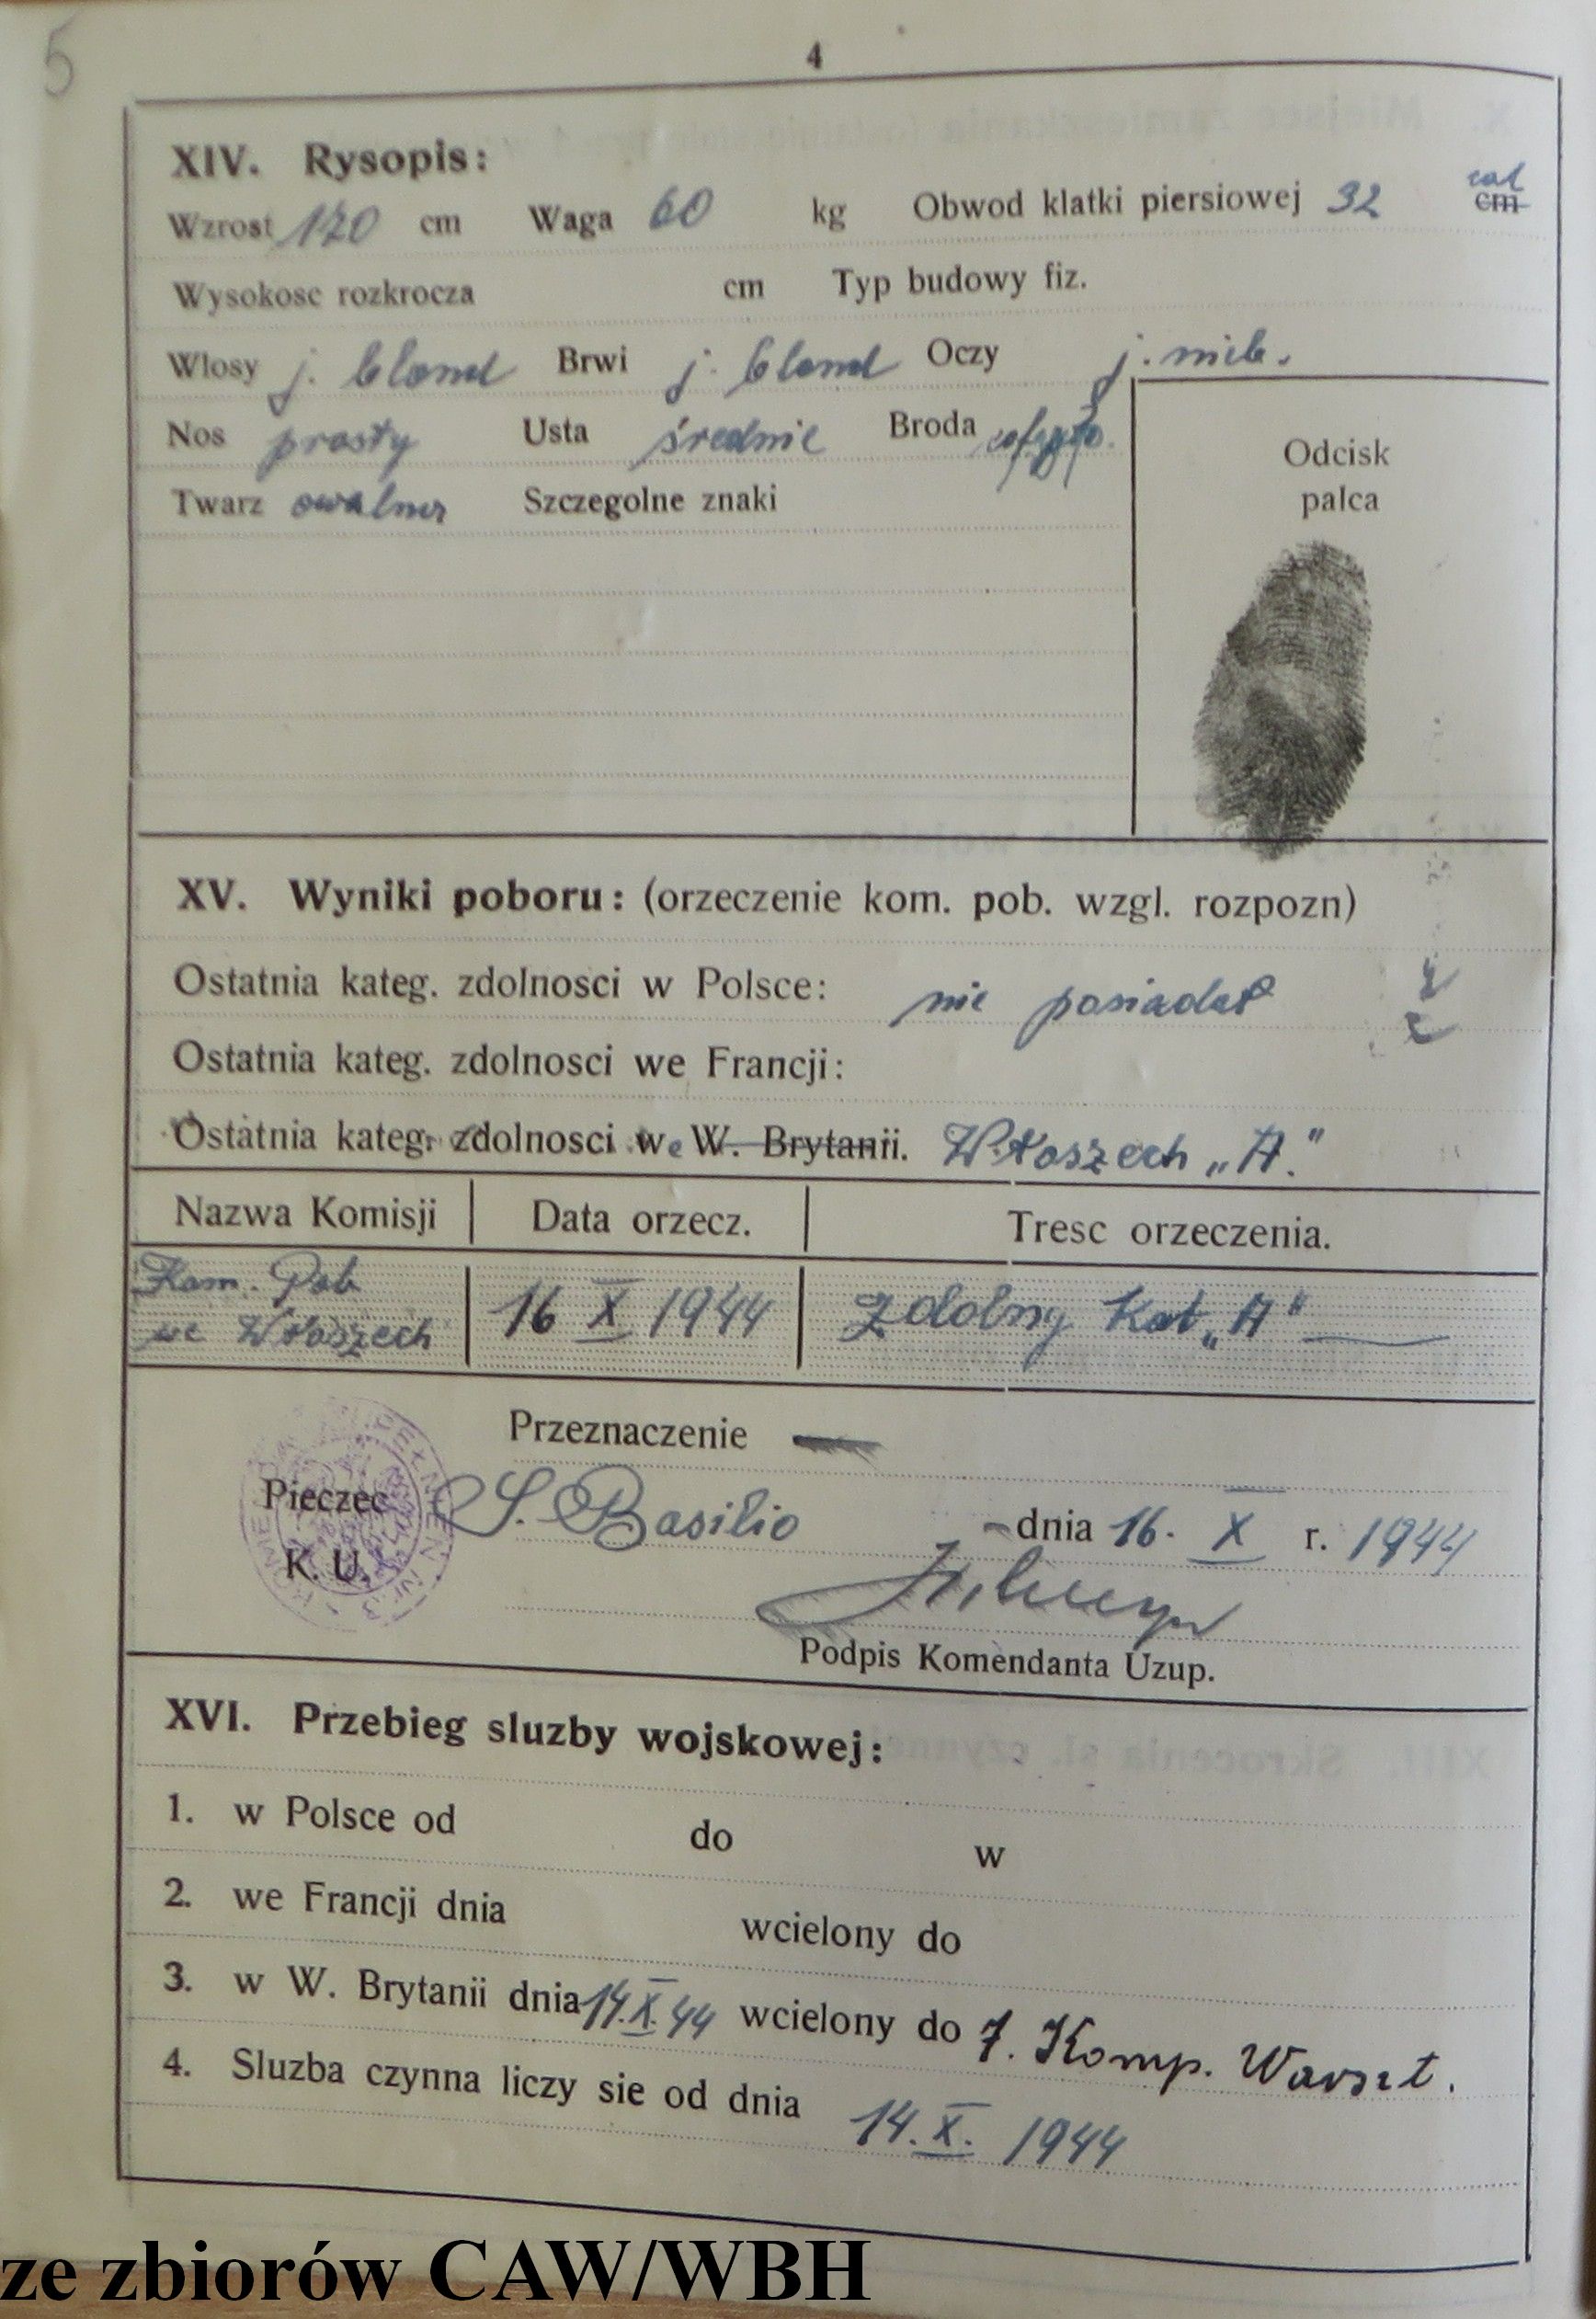 5
4
XIV. Rysopis:
Wzrost 170 cm Waga 60 kg Obwod klatki piersiowej 32 cal cm
Wysokosc rozkrocza cm Typ budowy fiz.
Wlosy j. blond Brwi j. blond Oczy j. nieb.
Nos prosty Usta średnie Broda
Twarz owalna Szczegolne znaki
Odcisk
palca
XV. Wyniki poboru: (orzeczenie kom. pob. wzgl. rozpozn)
Ostatnia kateg. zdolnosci w Polsce: nie posiadał
Ostatnia kateg. zdolnosci we Francji:
Ostatnia kateg. zdolnosci we W. Brytanii. Włoszech „A."
Nazwa Komisji Data orzecz. Tresc orzeczenia.
Kom. Pob
we Włoszech 16 X 1944 Zdolny Kat „A"
Przeznaczenie —
Pieczec S. Basilio dnia 16. X r. 1944
K. U.
Podpis Komendanta Uzup.
XVI. Przebieg sluzby wojskowej:
1. w Polsce od do w
2. we Francji dnia wcielony do
3. w W. Brytanii dnia 14.X.44 wcielony do 7. Komp. Warszt.
4. Sluzba czynna liczy sie od dnia 14.X. 1944
ze zbiorów CAW/WBH